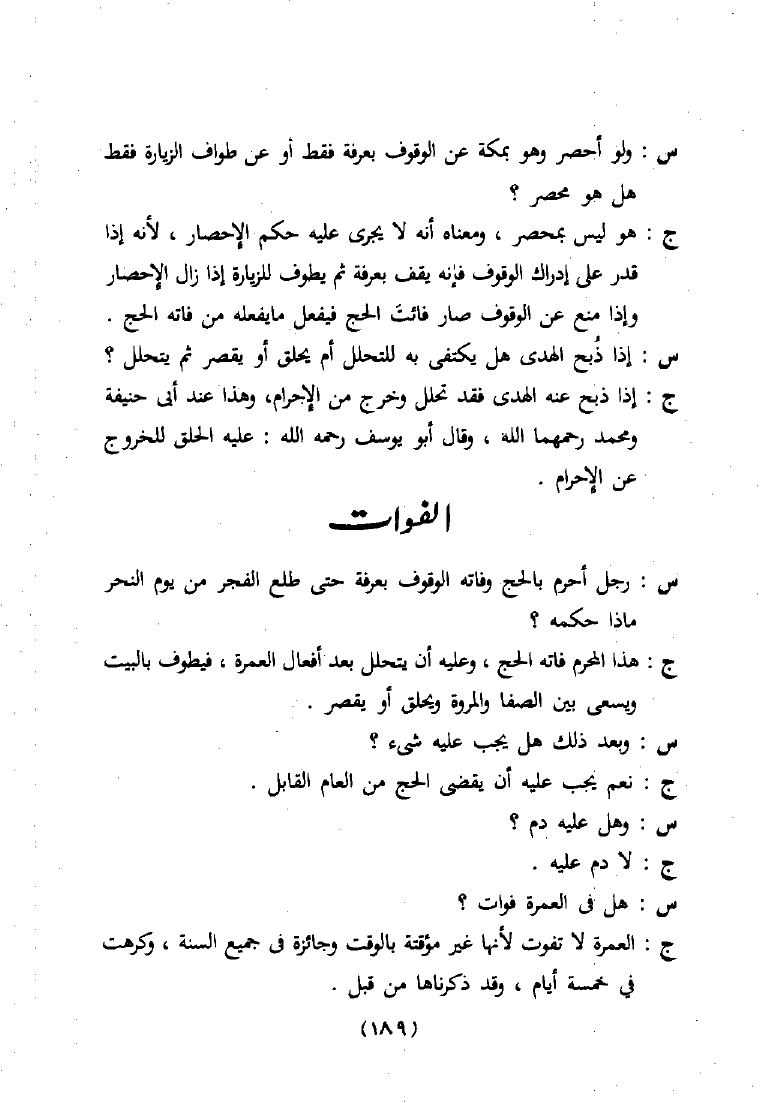 س : ولو أحصر وهو بمكة عن الوقوف بعرفة فقط أو عن طواف الزيارة فقط
هل هو محصر ؟
ج : هو ليس بمحصر ، ومعناه أنه لا يجرى عليه حكم الإحصار ، لأنه إذا
قدر على إدراك الوقوف فإنه يقف بعرفة ثم يطوف للزيارة إذا زال الإحصار
وإذا منع عن الوقوف صار فائتَ الحج فيفعل مايفعله من فاته الحج .
س : إذا ذُبح الهدى هل يكتفى به للتحلل أم يحلق أو يقصر ثم يتحلل ؟
ج : إذا ذبح عنه الهدى فقد تحلل وخرج من الإجرام، وهذا عند أبى حنيفة
ومحمد رحمهما الله ، وقال أبو يوسف رحمه الله : عليه الحلق للخروج
عن الإحرام .
الفوات
س : رجل أحرم بالحج وفاته الوقوف بعرفة حتى طلع الفجر من يوم النحر
ماذا حكمه ؟
ج : هذا المحرم فاته الحج ، وعليه أن يتحلل بعد أفعال العمرة ، فيطوف بالبيت
ويسعى بين الصفا والمروة ويحلق أو يقصر .
س : وبعد ذلك هل يجب عليه شىء ؟
ج : نعم يجب عليه أن يقضى الحج من العام القابل .
س : وهل عليه دم ؟
ج : لا دم عليه .
س : هل فى العمرة فوات ؟
ج : العمرة لا تفوت لأنها غير مؤقتة بالوقت وجائزة فى جميع السنة ، وكرهت
في خمسة أيام ، وقد ذكرناها من قبل .
(١٨٩)